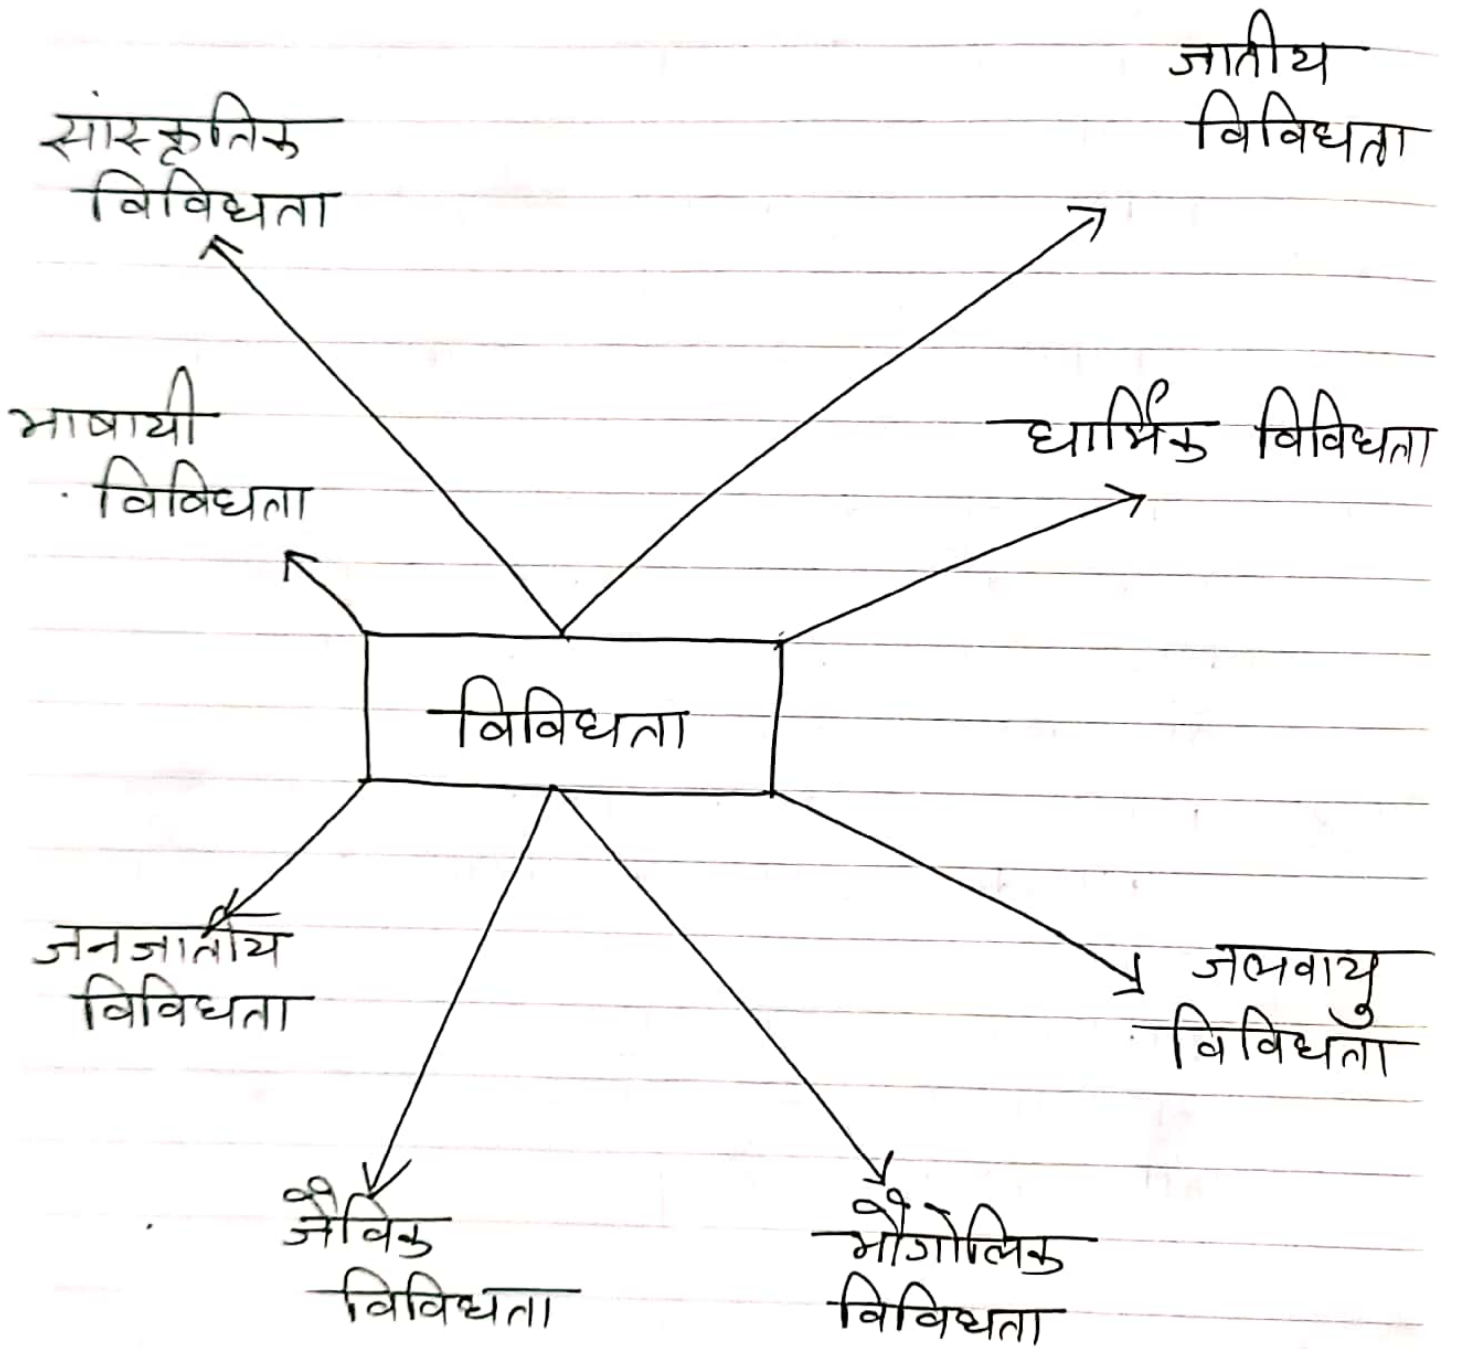 सांस्कृतिक
विविधता
जातीय
विविधता
भाषायी
विविधता
धार्मिक विविधता
विविधता
जनजातीय
विविधता
जलवायु
विविधता
जैविक
विविधता
भौगोलिक
विविधता